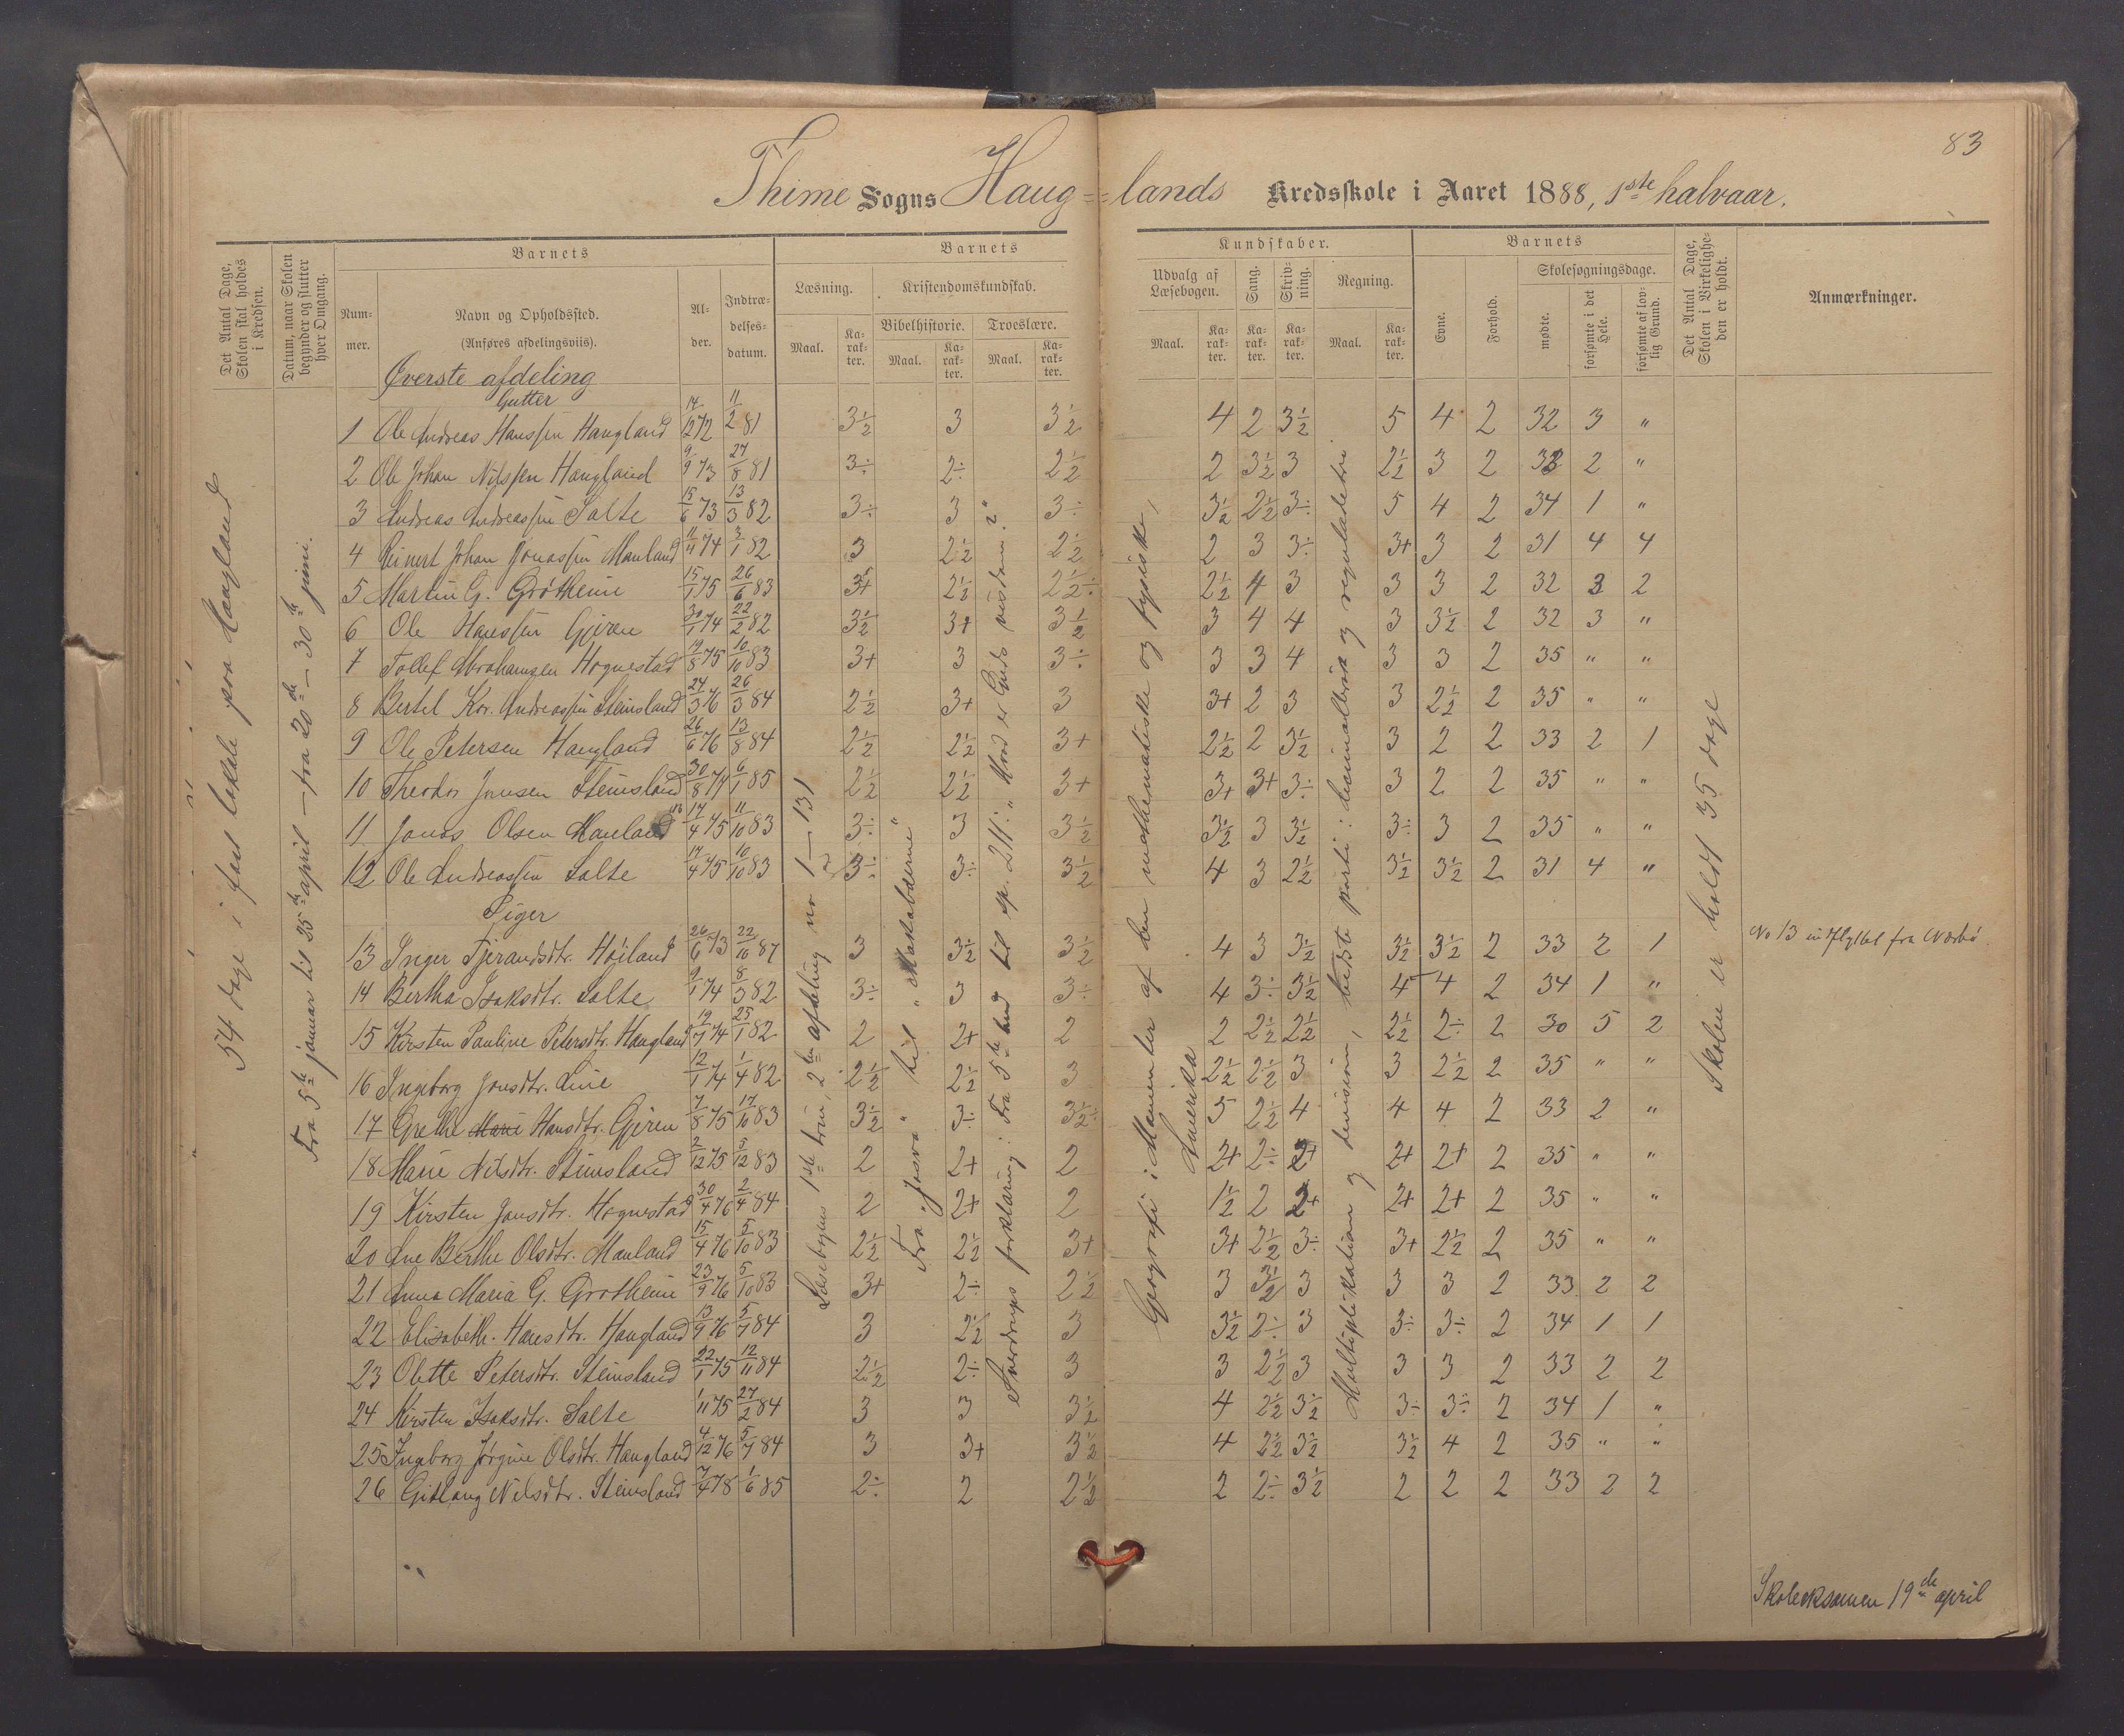 83
Thime Sogns Haug=lands Kredsskole i Aaret 1888, 1ste halvaar.
Det Antal Dage, Skolen skal holdes i Kredsen.
Datum, naar Skolen begynder og slutter hver Omgang.
Barnets
Nummer.
Navn og Opholdssted.
(Anføres afdelingsviis).
Alder.
Indtrædelsesdatum.
Barnets Kundskaber.
Læsning.
Maal. Karakter.
Kristendomskundskab.
Bibelhistorie. Troeslære.
Maal. Karakter. Maal. Karakter.
Udvalg af Læsebogen.
Maal. Karakter.
Sang. Karakter.
Skrivning. Karakter.
Regning.
Maal. Karakter.
Barnets
Evne. Forhold.
Skolesøgningsdage.
mødte. forsømte i det Hele. forsømte af lovlig Grund.
Det Antal Dage, Skolen i Virkeligheden er holdt.
Anmærkninger.
54 dage i fast lokale paa Haugland
Fra 5te januar til 25de april — fra 20de — 30te juni.
Øverste afdeling
Gutter
1 Ole Andreas Hanssen Haugland 14/12 72 11/2 81 3½ 3 3½ 4 2 3½ 5 4 2 32 3 "
2 Ole Johan Nilssen Haugland 9/9 73 27/8 81 3÷ 2÷ 2½ 2 3½ 3 2½ 3 2 33 2 "
3 Andreas Andreassen Salte 15/6 73 13/3 82 3÷ 3 3÷ 3½ 2½ 3÷ 5 4 2 34 1 "
4 Reinert Johan Jonassen Mauland 11/4 74 3/1 82 3 2½ 2½ 2 3 3÷ 3+ 3 2 31 4 4
5 Martin G. Grötheim 15/1 75 26/6 83 3+ 2½ 2½÷ 2½ 4 3 3 3 2 32 3 2
6 Ole Hanssen Gjeren 30/1 74 22/2 82 3½ 3+ 3½ 3 4 4 3 3½ 2 32 3 "
7 Tollef Abrahamsen Hognestad 19/8 75 10/10 83 3+ 3 3÷ 3 3 4 3 3 2 35 " "
8 Bertel Kor. Andreassen Steinsland 24/3 76 26/3 84 2½ 3+ 3 3+ 2 3 3 2½ 2 35 " "
9 Ole Petersen Haugland 26/6 76 13/8 84 2½ 2½ 3+ 2½ 2 3½ 3 2 2 33 2 1
10 Theodor Jonsen Steinsland 30/8 74 6/1 85 2½ 2½ 3+ 3+ 3+ 3÷ 3 2 2 35 " "
11 Jonas Olsen Mauland 14/4 75 11/10 83 3÷ 3 3½ 3½ 3 3½ 3÷ 3 2 35 " "
12 Ole Andreassen Salte 14/4 75 10/10 83 3÷ 3÷ 3½ 4 3 2½ 3½ 3½ 2 31 4 "
Piger
13 Inger Tjerandsdtr. Höiland 26/6 73 22/10 87 3 3½ 3½ 4 3 3½ 3½ 3½ 2 33 2 1 No 13 indflyttet fra Nærbö
14 Bertha Isaksdtr. Salte 9/1 74 8/3 82 3÷ 3 3÷ 4 3÷ 3½ 4 4 2 34 1 "
15 Kirsten Pauline Petersdtr. Haugland 19/7 74 25/1 82 2 2+ 2 2 2½ 2½ 2½ 2÷ 2 30 5 2
16 Ingeborg Jonsdtr. Line 12/1 74 1/4 82 2½ 2½ 3 2½ 2½ 3 3 2½ 2 35 " "
17 Grethe Marie Hansdtr. Gjeren 7/8 75 17/10 83 3½ 3÷ 3½÷ 5 2½ 4 4 4 2 33 2 "
18 Marie Nilsdtr. Steinsland 2/12 75 5/12 83 2 2+ 2 2+ 2÷ 2+ 2+ 2+ 2 35 " "
19 Kirsten Jonsdtr. Hognestad 30/4 76 2/4 84 2 2+ 2 1½ 2 2+ 2+ 2+ 2 35 " "
20 Ane Berthe Olsdtr. Mauland 15/4 76 5/10 83 2½ 2½ 3+ 3+ 2½ 3÷ 3+ 2½ 2 35 " "
21 Anna Maria G. Grotheim 23/9 76 5/10 83 3+ 2÷ 2½ 3 3½ 3 3 3 2 33 2 2
22 Elisabeth Hansdtr. Haugland 13/9 76 5/7 84 3 2½ 3 3½ 2÷ 3 3÷ 3÷ 2 34 1 1
23 Olette Petersdtr. Steinsland 22/1 75 12/11 84 2½ 2÷ 3 3 2½ 3 3 3 2 33 2 2
24 Kirsten Isaksdtr. Salte 1/11 75 27/2 84 3 3 3½ 4 2½ 3½ 3÷ 3÷ 2 34 1 "
25 Ingeborg Jörgine Olsdtr. Haugland 4/12 76 5/7 84 3 3+ 3½ 4 2½ 3½ 3½ 4 2 35 " "
26 Gidlaug Nilsdtr. Steinsland 7/4 78 1/6 85 2÷ 2 2½ 2 2÷ 3½ 2 2 2 33 2 2
Læsebogens 1ste trin, 2den afdeling no 1 — 131
Fra "Josva" til "Makabæerne"
Sverdrups forklaring: Fra 5te bud til sp. 211: "Hvad er Guds visdom?"
Geografi: Elementer af den mathematiske og fysiske, Amerika
Multiplikation og division, bedste parti: decimalbrök og reguladetri
Skolen er holdt 35 dage
Skoleeksamen 19de april